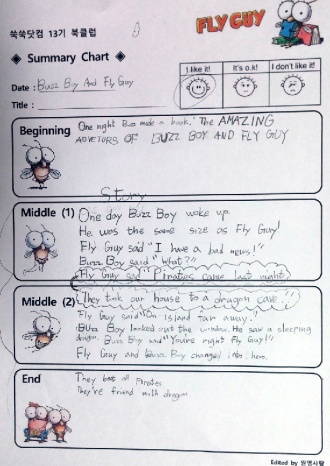 쑥쑥닷컴 13기 북클럽
FLY GUY
◈ Summary Chart ◈
I like it!
It's o.k!
I don't like it!
Date : Buzz Boy And Fly Guy
Title :
Beginning
One night Buzz made a book. The AMAZING
OF BUZZ BOY AND FLY GUY
Story
Middle (1)
One day Buzz Boy woke up.
He was the same size as Fly Guy!
Fly Guy said "I have a bad news!"
Buzz Boy said "What?"
Fly Guy said "Pirates came last night
Middle (2)
They took our house to a dragon cave."
Fly Guy said "On Island far away."
Buzz Boy looked out the window. He saw a sleeping
dragon. Buzz Boy said "You're right Fly Guy!"
Fly Guy and Buzz Boy changed into hero.
End
They beat all pirates
They're friend with dragon
Edited by 원영사랑